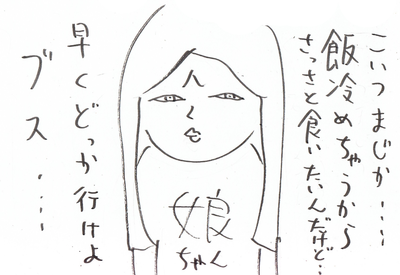 こいつまじか・・・・
飯冷めちゃうから
さっさと食いたいんだけど・・
娘
ちゃん
早くどっか行けよ
ブス・・・・